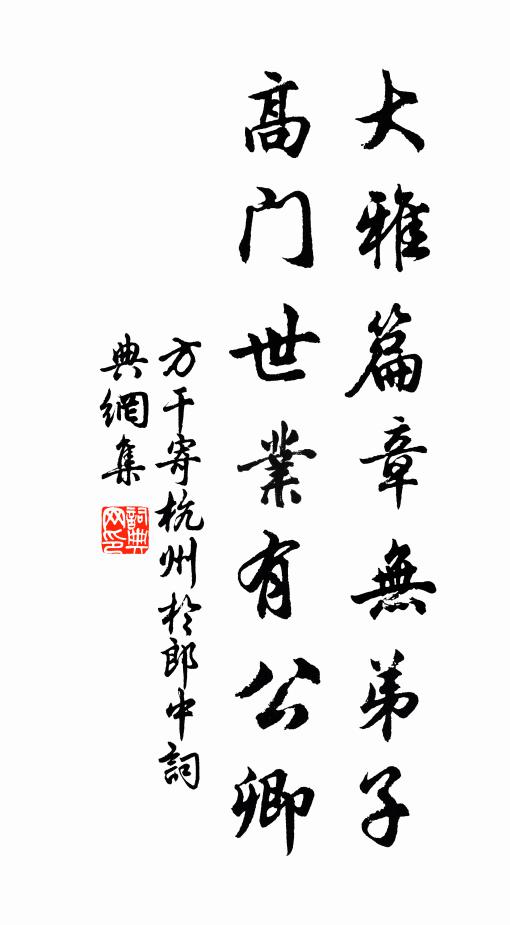 大雅篇章無弟子
高门世業有公卿
方干寄杭州於郎中詞
典網集
詞典网印